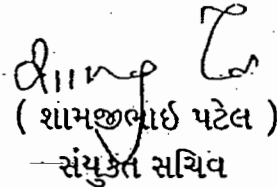 ( શામજીભાઇ પટેલ )
સંયુકત સચિવ